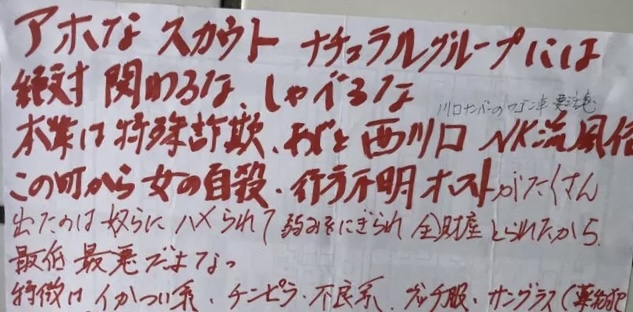 アホな スカウト ナチュラルグループには
絶対 関わるな、しゃべるな
川口ナンバーのワゴン車 要注意
本業は特殊詐欺、あと 西川口 NK流風俗
この町から女の自殺・行方不明 ホストがたくさん
出たのは奴らにハメられて 弱みをにぎられ 全財産とられたから。
最低最悪だよなっ
特徴はイカつい系・チンピラ・不良系 グッチ服・サングラス(薬物